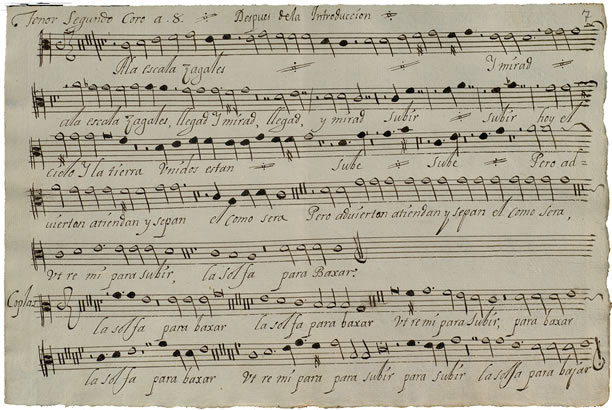 Tenor Segundo Coro a. 8. Despues dela Introduccion 7
Ala escala zagales Y mirad
ala escala zagales, llegad Y mirad, llegad, y mirad subir subir hoy el
cielo Y la tierra Unidos estan sube sube Pero ad=
vierton atiendan y sepan el como sera Pero advierton atiendan y sepan el como sera,
Vt re mi para subir, la sol fa para Baxar:
Coplas
la sol fa para baxar la sol fa para baxar Vt re mi para subir, para baxar
la sol fa para baxar Vt re mi para para subir para subir la sol fa para bajar